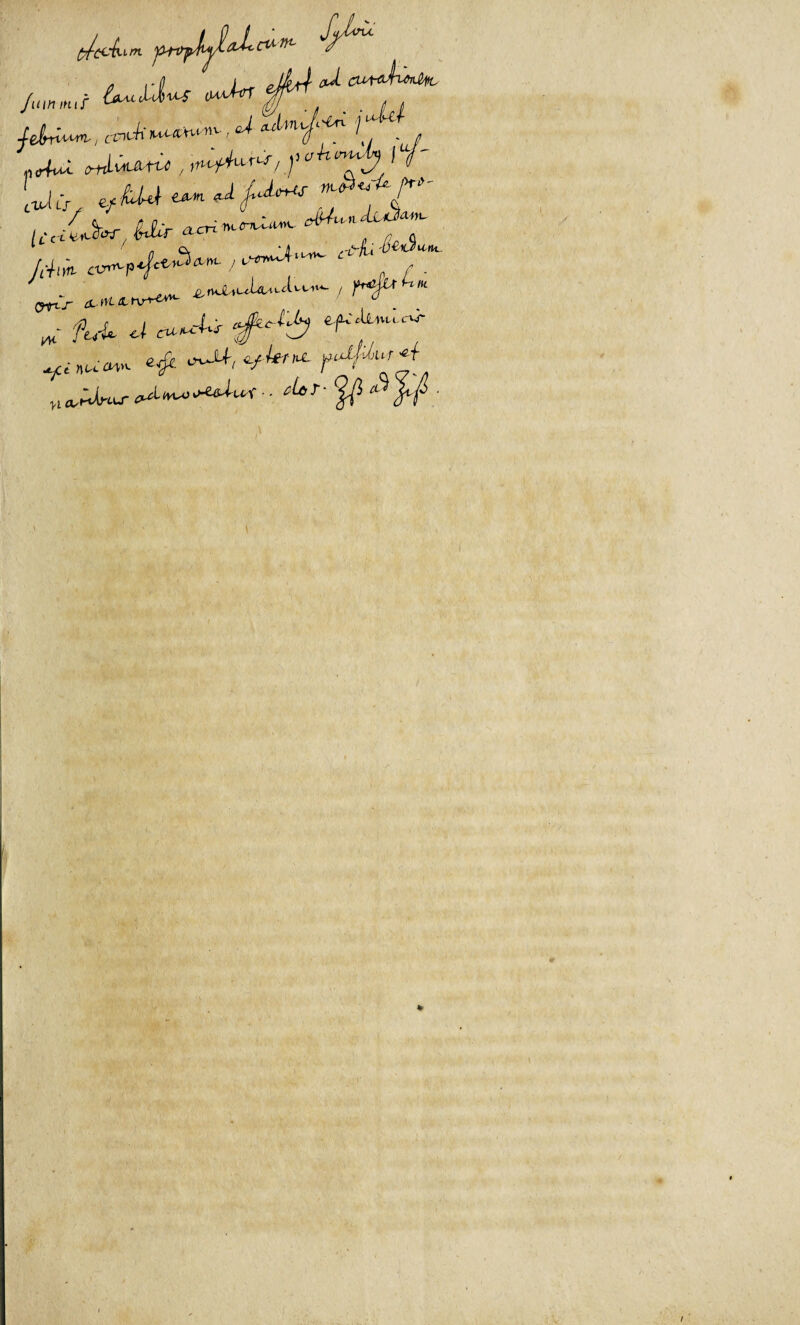 Electum prophylacticum Sylvii
summis laudibus autor effert ad curationem
febrium, continuarum, et admisceri jubet
potui ordinario, mixturis, potionibus jus-
culis, exhibet eam ad sudores moleste pro-
liciendos, bilis acrimoniam obtundendam
sitim compescendam, vomitum cohibendum
oris amarorem emendandum, praesertim
in Peste et cunctis affectibus epidemicis
eximiam esse vult, externe pulsibus et
naribus admoveatur .. dos. ℥ß ad ʒiß.